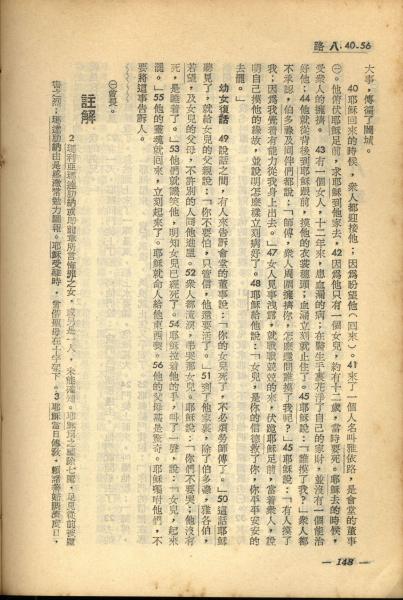 路 八．40．56
大事，傳遍了闔城。
40耶穌回來的時候，衆人都迎接他；因爲盼望他（回來）。41來了一個人名叫雅依路，是會堂的董事
㊀。他俯伏耶穌足前，求耶穌到他家去，42因爲他只有一個女兒，約有十二歲，當時要死。耶穌去的時候，
受衆人的擁擠。43有一個女人，十二年來，患血漏的病；在醫生手裏花淨了自己的家財，並沒有一個能治
好他；44他就從背後到耶穌跟前，摸他的衣裳繐頭；血漏立刻就止住了。45耶穌說：「誰摸了我？」衆人都
不承認，伯多祿及同伴們都說：「師傅，衆人周圍擁擠你，怎麼還問誰摸了我呢？」45耶穌說：「有人摸了
我；因爲我覺着有能力從我身上出去。」47女人見事洩露，就戰戰兢兢的來，伏跪耶穌足前，當着衆人，說
明自己摸他的緣故，並說明怎麼樣立刻病好了。48耶穌給他說：「女兒，是你的信德救了你，你平平安安的
去罷。」
幼女復活 49說話之間，有人來告訴會堂的董事說：「你的女兒死了，不必煩勞師傅了。」50這話耶穌
聽見了，就給女兒的父親說：「你不要怕，只管信，他還要活了。」51到了他家裏，除了伯多祿，雅各伯，
若望，及女兒的父母，不許別的人同他進屋。52衆人都流淚，弔哭那女兒。耶穌說：「你們不要哭；他沒有
死，是睡着了。」53他們就譏笑他，明知女兒已經死了。54耶穌拉着他的手，叫了一聲，說：「女兒，起來
罷。」55他的靈魂就回來，立刻起來了。耶穌就命人給他東西喫。56他的父母萬是驚奇。耶穌囑咐他們，不
要將這事告訴人。
㊀會長。
註解
2 瑪利亞瑪達肋納或即前章所言犯罪之女，或另是一人，未能確知。耶穌
3 耶穌當日傳教，
— 148 —